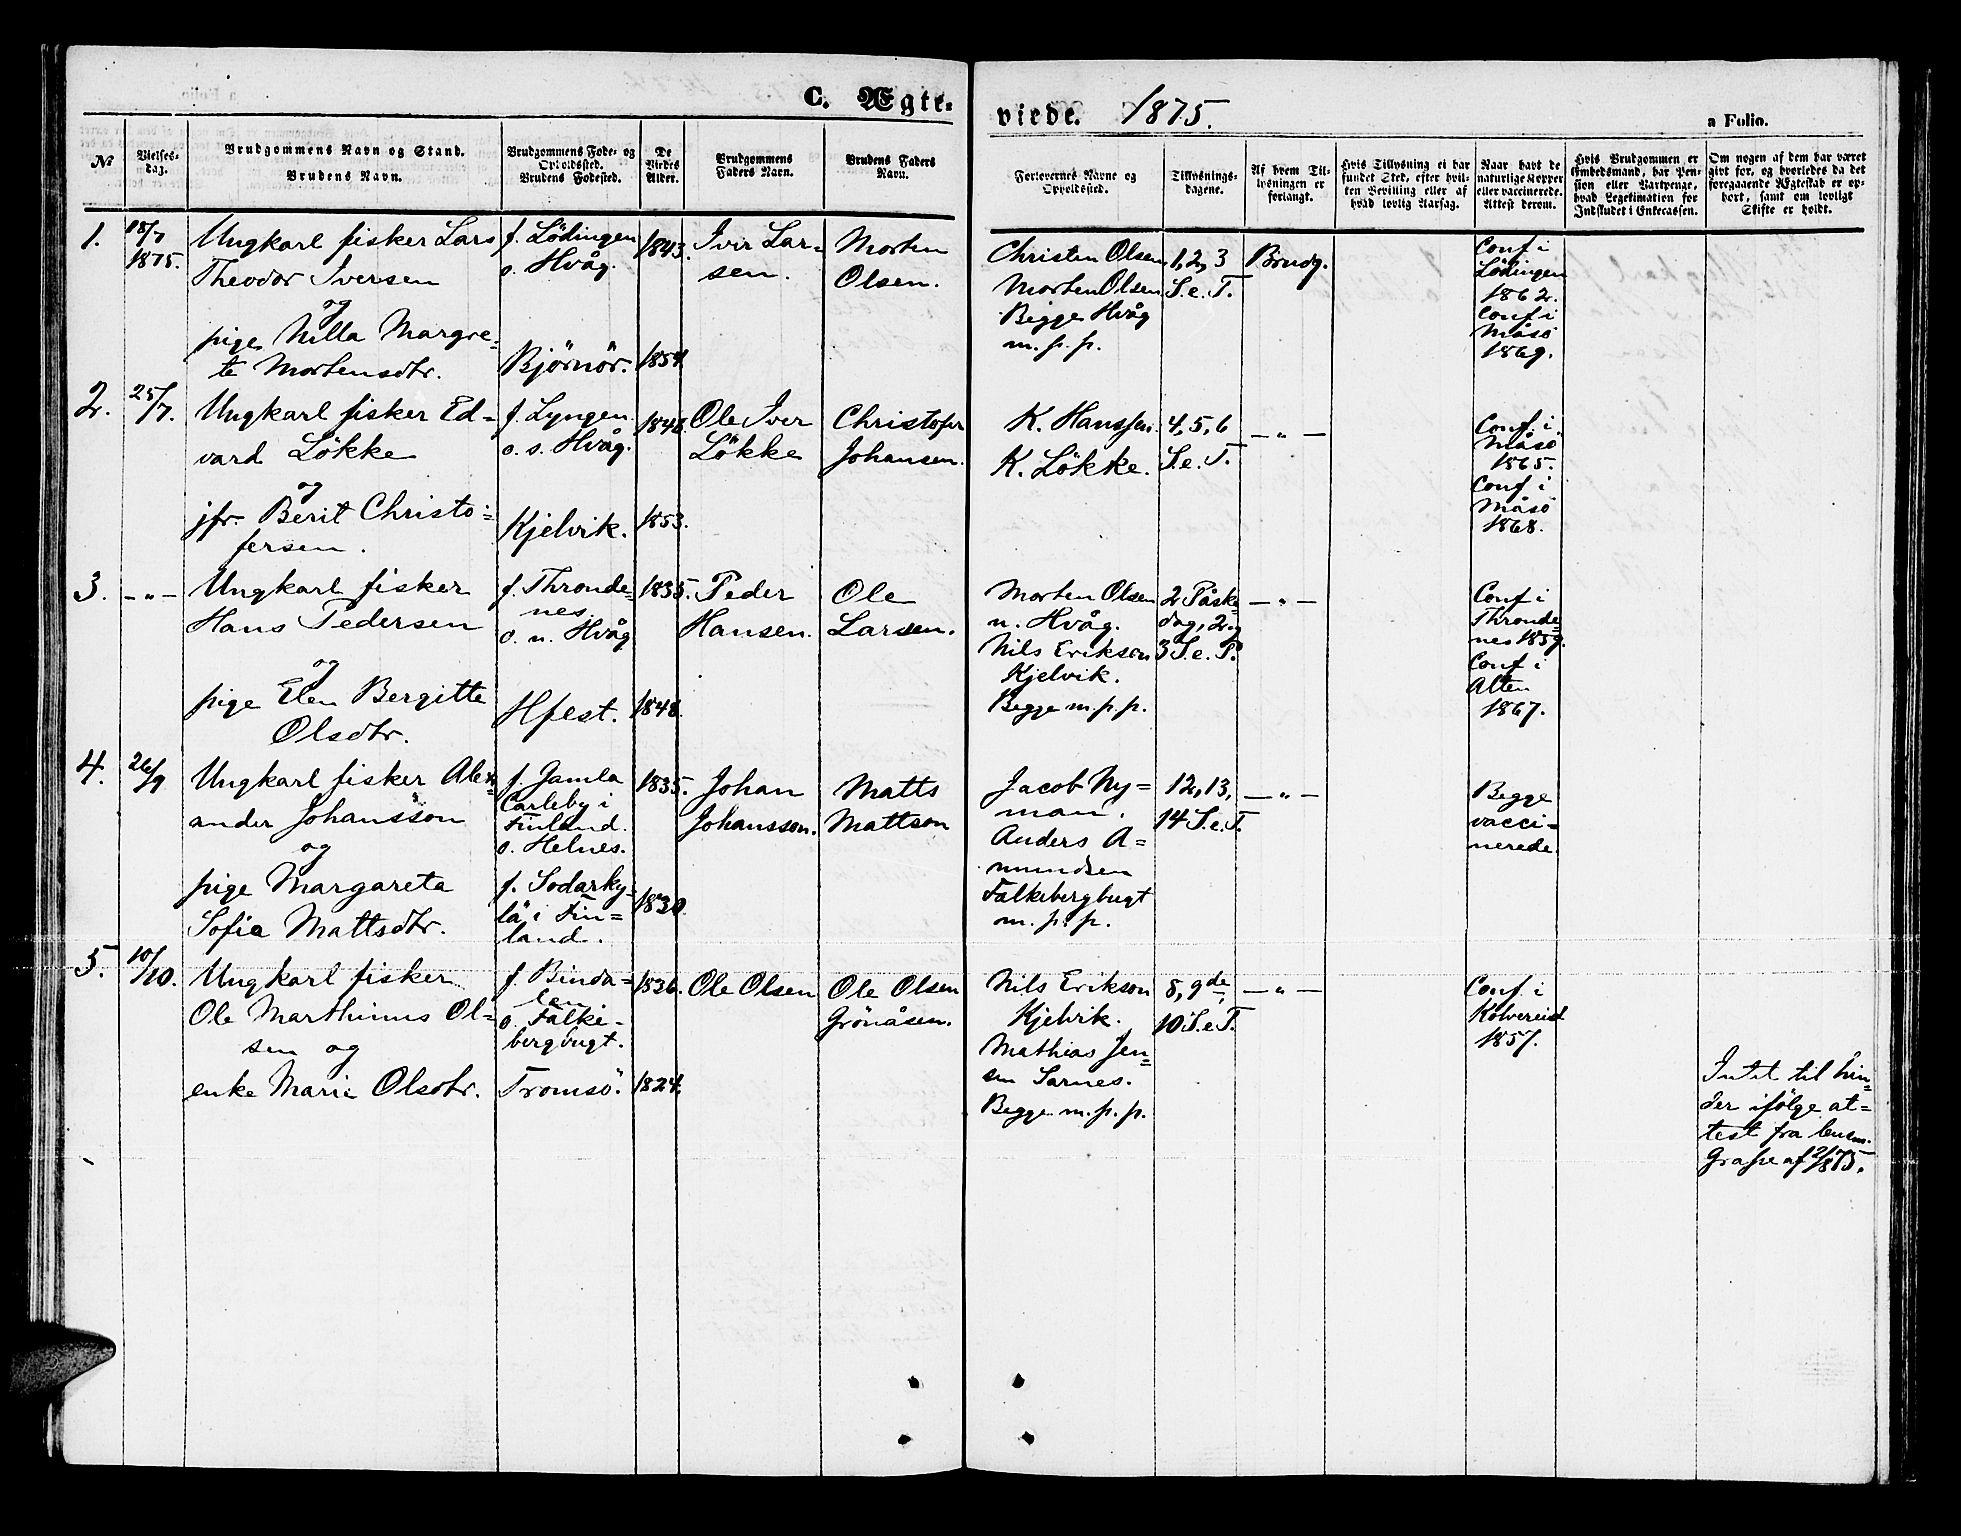 C. Ægte-
viede. 1875.
a Folio.
No
Vielses-
dag.
Brudgommens Navn og Stand.
Brudens Navn.
Brudgommens Føde- og
Opholdssted.
Brudens Fødested.
De
Viedes
Alder.
Brudgommens
Faders Navn.
Brudens Faders
Navn.
Forlovernes Navne og
Opholdssted.
Tillysnings-
dagene.
Af hvem Til-
lysningen er
forlangt.
Hvis Tillysning ei har
fundet Sted, efter hvil-
ken Bevilling eller af
hvad lovlig Aarsag.
Naar havt de
naturlige Kopper
eller vaccinerede.
Attest derom.
Hvis Brudgommen er
Embedsmand, har Pen-
sion eller Vartpenge,
hvad Legitimation for
Indskudet i Enkecassen.
Om nogen af dem har været
gift før, og hvorledes da det
foregaaende Ægteskab er op-
hørt, samt om lovligt
Skifte er holdt.
1.
18/7
1875.
Ungkarl fisker Lars
Theodor Iversen
og
pige Nilla Margre-
te Mortensdtr.
f. Lödingen
o. Hvåg.
Björnör.
1843.
1854.
Iver Lar-
sen.
Morten
Olsen.
Christen Olsen
Morten Olsen
Begge Hvåg
m. p. p.
1, 2, 3
S. e. T.
Brudg.
Conf i
Lödingen
1862.
Conf i
Måsö
1869.
2.
25/7.
Ungkarl fisker Ed-
vard Lökke
og
jfr. Berit Christo-
fersen.
f. Lyngen
o. s. Hvåg.
Kjelvik.
1848.
1853.
Ole Iver
Lökke
Christofer
Johansen.
K. Hanssen.
K. Lökke.
4, 5, 6
S. e. T.
- " -
Conf i
Måsö
1865.
Conf i
Måsö
1868.
3.
- " -
Ungkarl fisker
Hans Pedersen
og
pige Elen Bergitte
Olsdtr.
f. Thronde-
nes.
o. n. Hvåg
Hfest.
1835.
1848.
Peder
Hansen.
Ole
Larsen.
Morten Olsen
n. Hvåg.
Nils Erikson
Kjelvik.
Begge m. p. p.
2 Påske-
dag, 2. og
3 S. e. P.
- " -
Conf i
Thronde-
nes 1859.
Conf i
Alten
1867.
4.
26/9
Ungkarl fisker Alex-
ander Johansson
og
pige Margareta
Sofia Mattsdtr.
f. Gamla
Carleby i
Finland.
o. Helnes.
f. Sodarky-
lä i Fin-
land.
1835.
1830.
Johan
Johansson.
Matts
Mattson
Jacob Ny-
man.
Anders A-
mundsen
Falkebergbugt
m. p. p.
12, 13,
14 S. e. T.
- " -
Begge
vacci-
nerede.
5.
10/10.
Ungkarl fisker
Ole Marthinus Ol-
sen og
enke Marie Olsdtr.
f. Binda-
len
o. Falke-
bergbugt.
Tromsö.
1836.
1824.
Ole Olsen
Ole Olsen
Grönåsen.
Nils Erikson
Kjelvik.
Mathias Jen-
sen Sarnes.
Begge m. p. p.
8, 9de,
10 S. e. T.
- " -
Conf i
Kolvereid
1857.
Intet til hin-
der ifölge at-
test fra